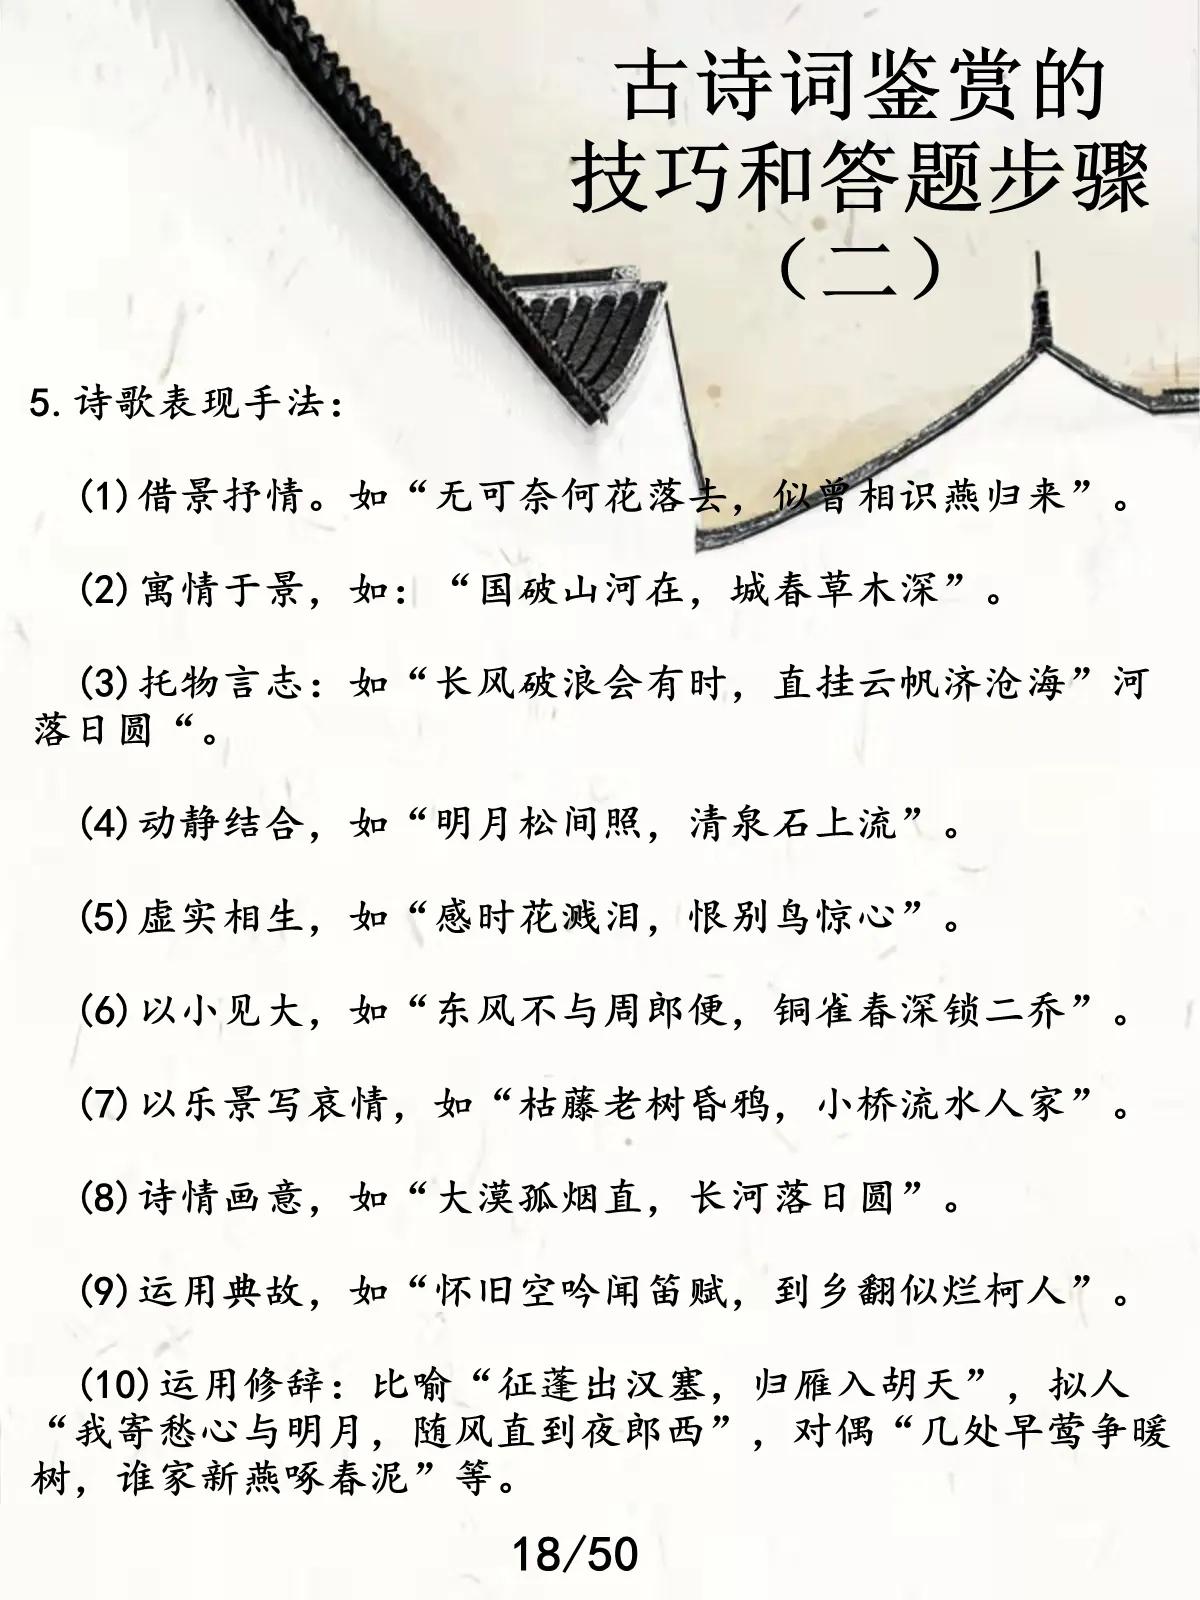 古诗词鉴赏的
技巧和答题步骤
（二）
5.诗歌表现手法：
(1)借景抒情。如“无可奈何花落去，似曾相识燕归来”。
(2)寓情于景，如：“国破山河在，城春草木深”。
(3)托物言志：如“长风破浪会有时，直挂云帆济沧海”河
落日圆“。
(4)动静结合，如“明月松间照，清泉石上流”。
(5)虚实相生，如“感时花溅泪，恨别鸟惊心”。
(6)以小见大，如“东风不与周郎便，铜雀春深锁二乔”。
(7)以乐景写哀情，如“枯藤老树昏鸦，小桥流水人家”。
(8)诗情画意，如“大漠孤烟直，长河落日圆”。
(9)运用典故，如“怀旧空吟闻笛赋，到乡翻似烂柯人”。
(10)运用修辞：比喻“征蓬出汉塞，归雁入胡天”，拟人
“我寄愁心与明月，随风直到夜郎西”，对偶“几处早莺争暖
树，谁家新燕啄春泥”等。
18/50